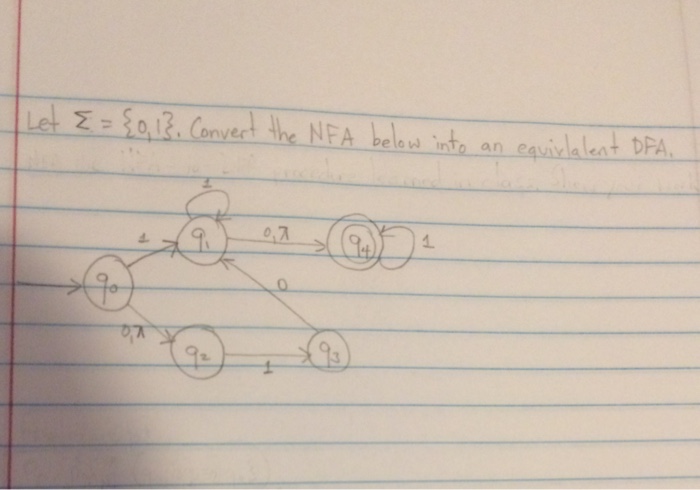 Let Σ = {0,1}. Convert the NFA below into an equivlalent DFA.
1
1 q1 0,λ q4 1
q0 0
0,λ q2 1 q3